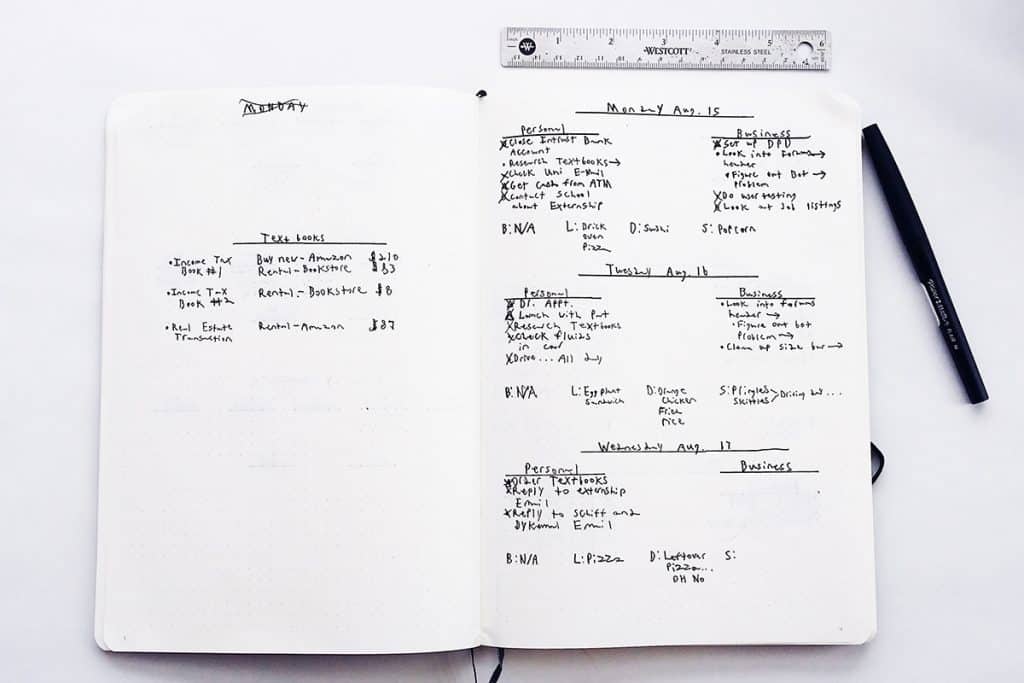 MONDAY
Textbooks
• Income Tax Buy new - Amazon $210
Book #1 Rental - Bookstore $83
• Income Tax Rental - Bookstore $8
Book #2
• Real Estate Rental - Amazon $37
Transaction
1 2 3 4 5 6
WESTCOTT STAINLESS STEEL
Monday Aug. 15
Personal
X Close Intrust Bank
Account
• Research Textbooks →
X Check Uni E-mail
X Get cash from ATM
X Contact School
about Externship
Business
X Set up DPD
• Look into Forums →
header
• Figure out Bot →
problem
X Do user testing
X Look at Job listings
B: N/A L: Brick D: Sushi S: Popcorn
oven
Pizza
Tuesday Aug. 16
Personal
X Dr. Appt.
Lunch with Pat
X Research Textbooks
X Check fluids
in car
X Drive... All day
Business
• Look into forums
header →
• Figure out bot
problem →
• Clean up size bar →
B: N/A L: Eggplant D: Orange S: Pringles > Driving day...
Sandwich Chicken Skittles
Fried
rice
Wednesday Aug. 17
Personal
X Order Textbooks
X Reply to externship
Email
X Reply to Schiff and
Email
Business
B: N/A L: Pizza D: Leftover S:
Pizza...
OH NO